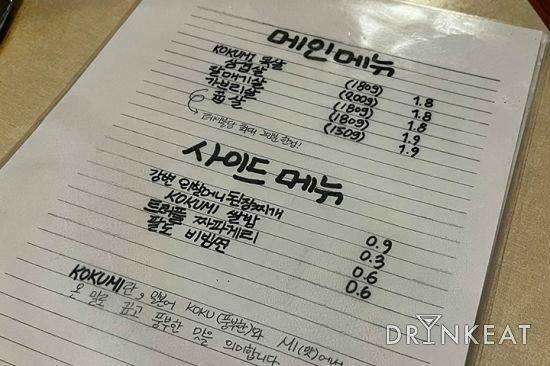 메인메뉴
KOKUMI 목살 (180g) 1.8
삼겹살 (200g) 1.8
갈매기살 (180g) 1.8
가브리살 (180g) 1.9
뽈살 (150g) 1.9
테이블당 최대 2인분 한정!
사이드 메뉴
강변 외할머니 된장찌개 0.9
KOKUMI 쌀밥 0.3
트러플 짜파게리 0.6
팔도 비빔면 0.6
KOKUMI란, 일본어 KOKU(풍부한)와 MI(맛)에서
온 말로 깊고 풍부한 맛을 의미합니다
DRINKEAT